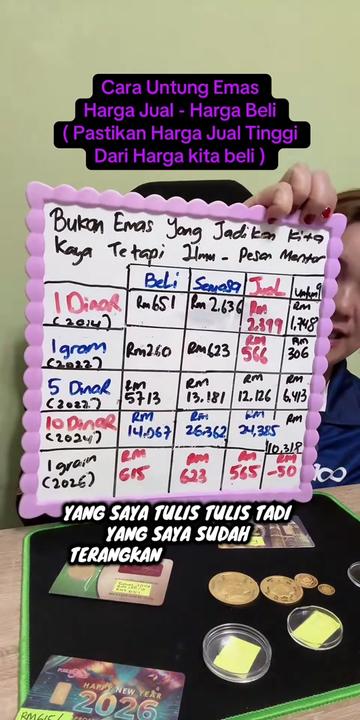 Cara Untung Emas
Harga Jual - Harga Beli
( Pastikan Harga Jual Tinggi
Dari Harga kita beli )
Bukan Emas Yang Jadikan Kita
Kaya Tetapi Ilmu - Pesan Mentor
Beli Semasa Jual Untung
1 Dinar (2014) RM 651 RM 2,636 RM 2,399 RM 1,748
1 gram (2022) RM 260 RM 623 RM 566 RM 306
5 Dinar (2022) RM 5713 RM 13,181 RM 12,126 RM 6,413
10 Dinar (2024) RM 14,067 RM 26,362 RM 24,385 RM 10,318
1 gram (2026) RM 615 RM 623 RM 565 RM -50
YANG SAYA TULIS TULIS TADI
YANG SAYA SUDAH
TERANGKAN
HAPPY NEW YEAR
2026
RM615/